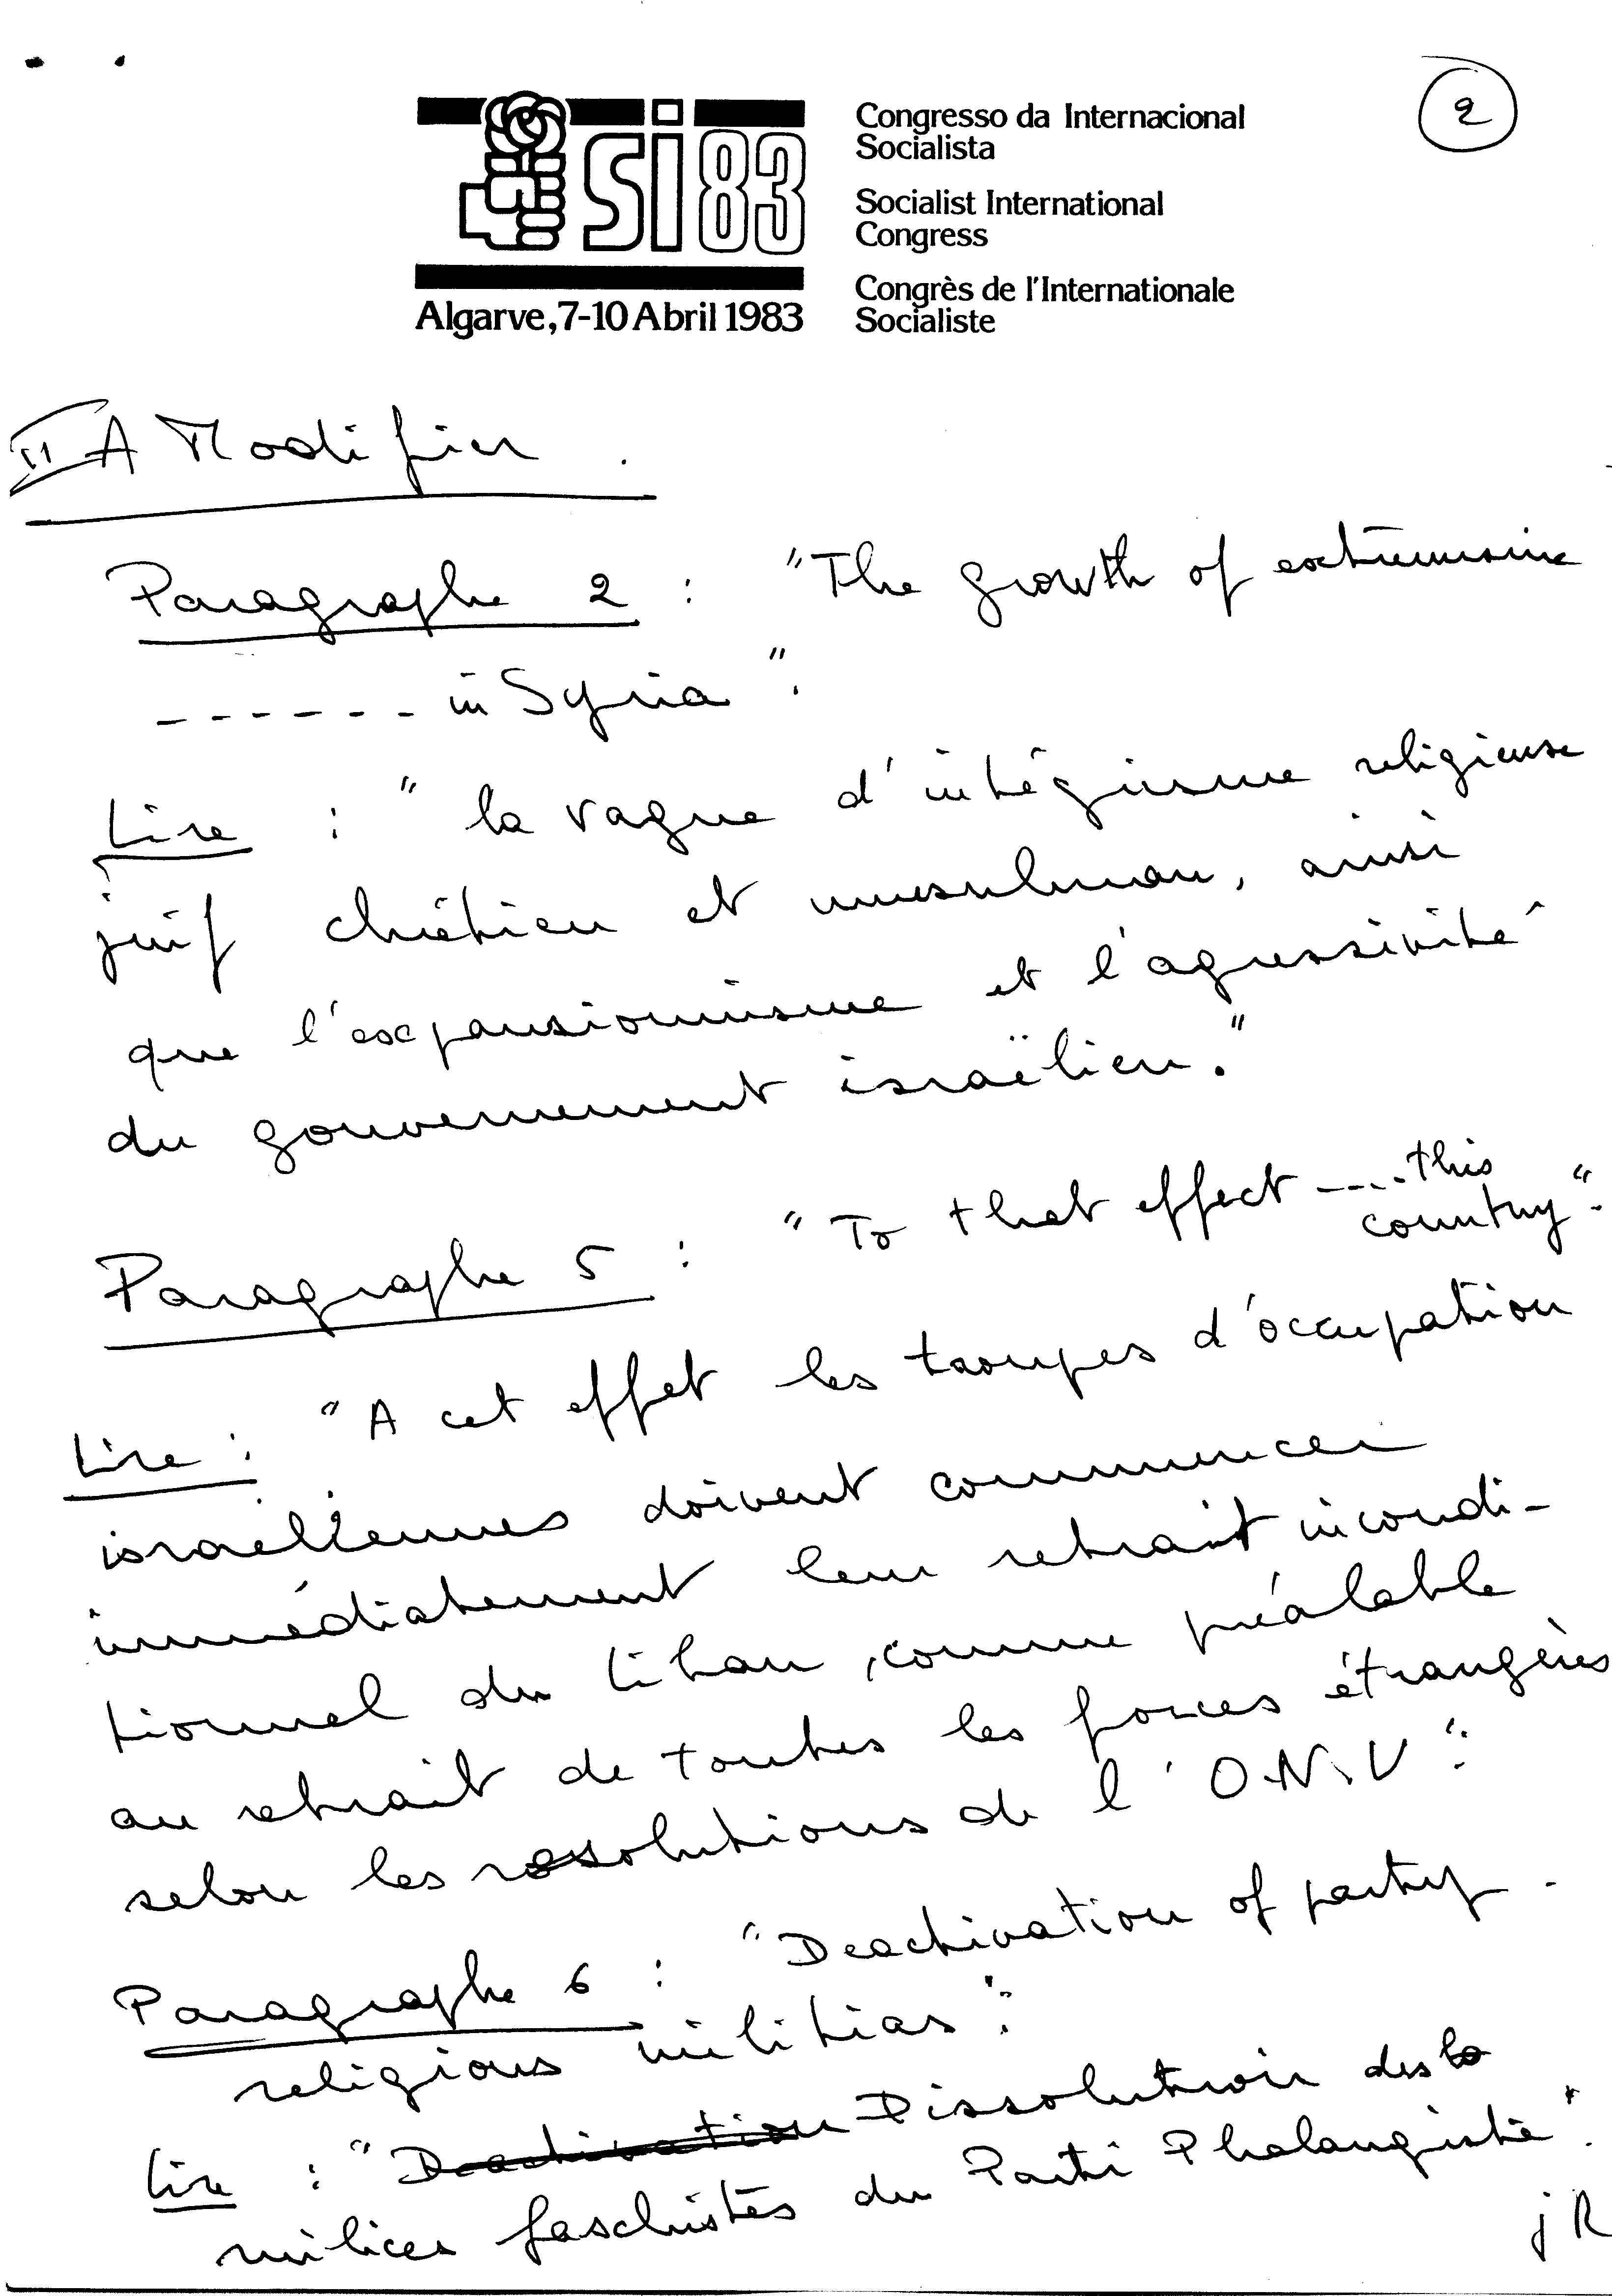 2
si 83
Algarve, 7-10 Abril 1983
Congresso da Internacional
Socialista
Socialist International
Congress
Congrès de l'Internationale
Socialiste
II A Modifier.
Paragraphe 2 : "The growth of extremism
------ in Syria".
Lire : "la vague d'intégrisme religieuse
juif chrétien et musulman, ainsi
que l'expansionnisme et l'agressivité
du gouvernement israëlien."
Paragraphe 5 : "To that effect ---- this
country".
Lire : "A cet effet les troupes d'occupation
israëliennes doivent commencer
immédiatement leur retrait incondi-
tionnel du Liban, comme préalable
au retrait de toutes les forces étrangères
selon les resolutions de l'O.N.U".
Paragraphe 6 : "Deactivation of party -
religious militias".
Lire : "Deactivation Dissolution des
milices faschistes du Parti Phalangiste".
jR